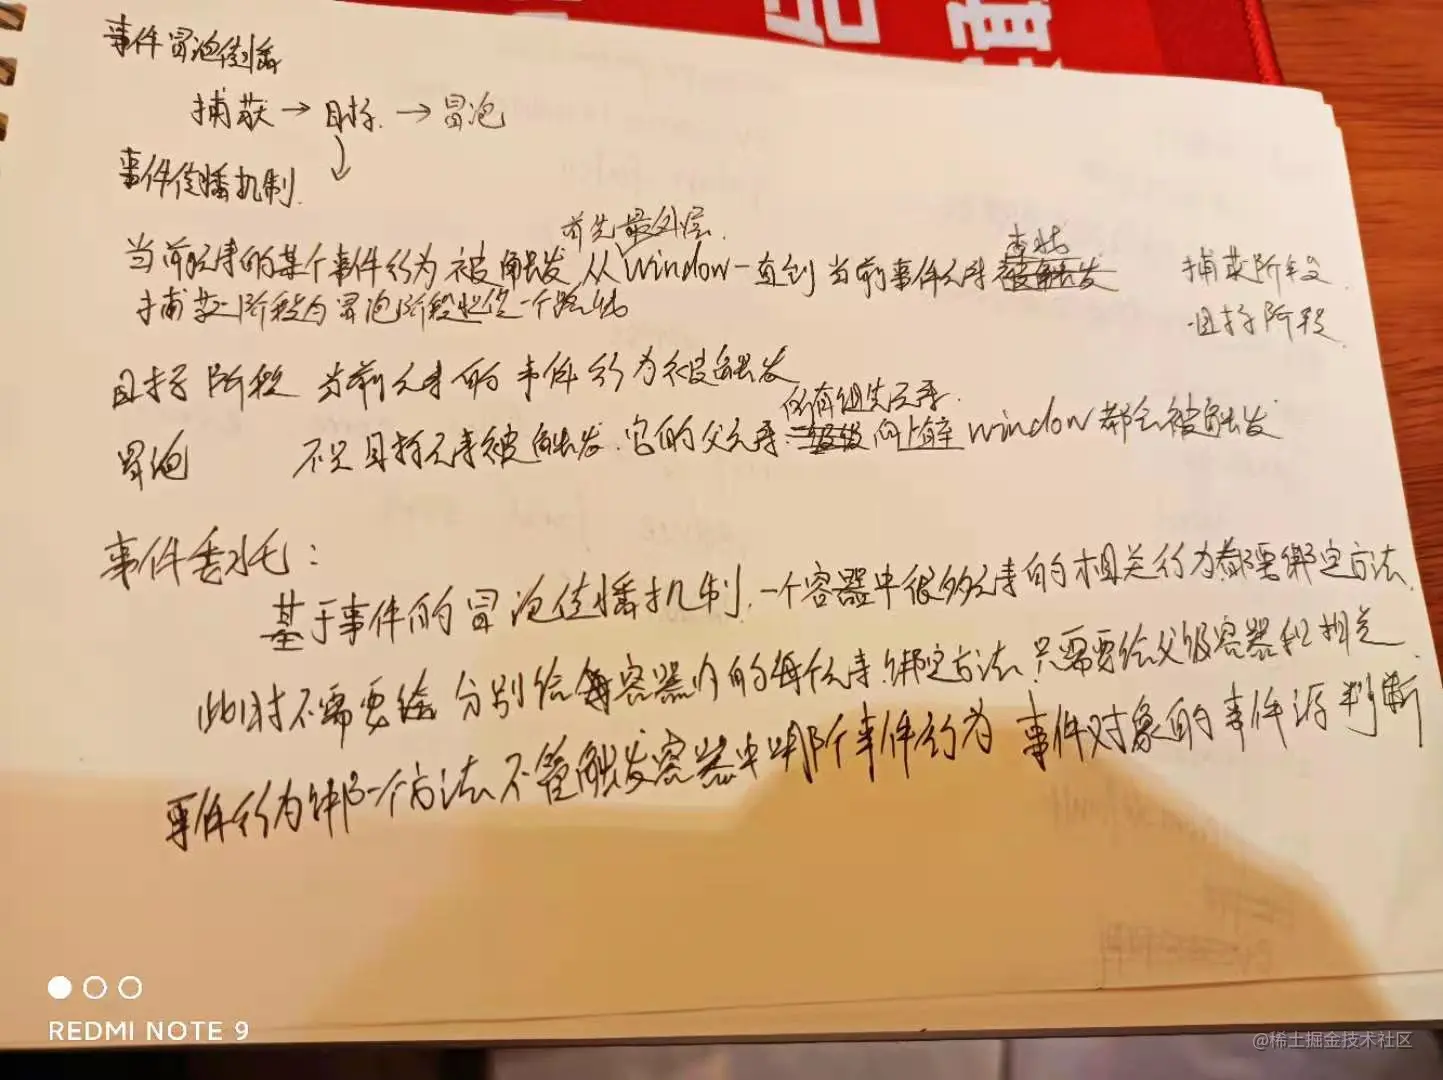 事件冒泡传播
捕获→目标→冒泡
事件传播机制
首先最外层
当前元素的某个事件行为被触发 从window一直到当前事件元素 查找 捕获阶段
捕获阶段为冒泡阶段提供一个路线 目标阶段
目标阶段 当前元素的事件行为被触发
所有祖先元素
冒泡 不只目标元素被触发.它的父元素.向上直到window都会被触发
事件委托:
基于事件的冒泡传播机制.一个容器中很多元素的相关行为都要绑定方法.
此时不需要给分别给每容器内的每个元素.绑定方法.只需要给父级容器和相关
事件行为绑一个方法.不管触发容器中哪个事件行为 事件对象的事件源判断
REDMI NOTE 9
@稀土掘金技术社区